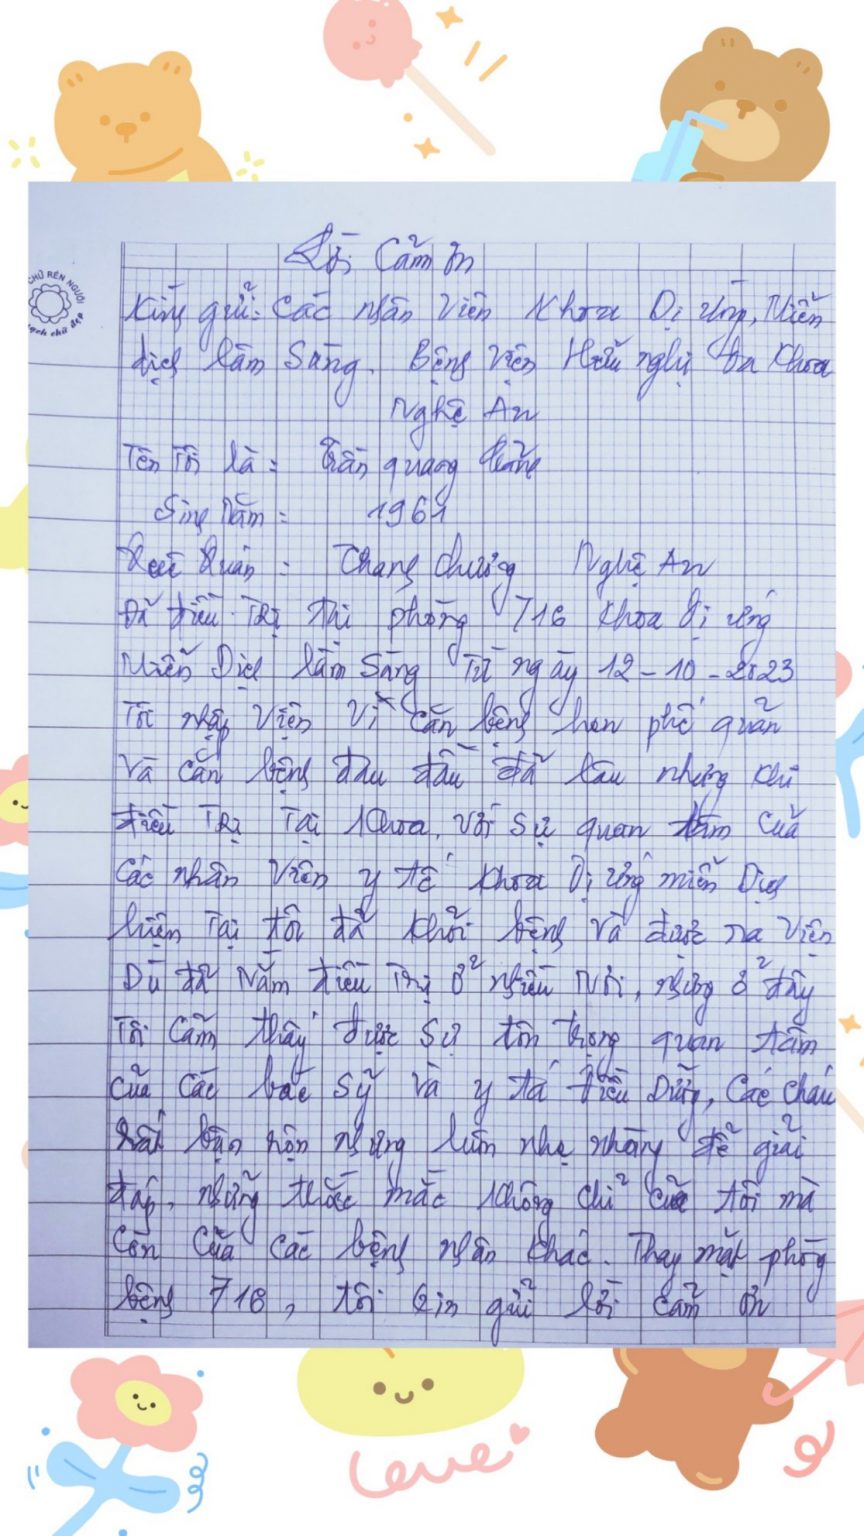 Lời Cảm ơn
CHỮ RÈN NGƯỜI
sạch chữ đẹp
Kính gửi: Các nhân Viên Khoa Dị Ứng, Miễn
dịch lâm Sàng. Bệnh Viện Hữu nghị Đa Khoa
Nghệ An
Tên Tôi là: Trần quang
Sing Năm: 1961
Quê Quán: Thang Chương Nghệ An
Đã điều Trị Tại phòng 716 Khoa Dị ứng
Miễn Dịch lâm Sàng Từ ngày 12-10-2023
Tôi nhập Viện Vì Căn bệnh hen phế quản
Và căn bệnh đau đầu đã lâu nhưng khi
điều Trị Tại Khoa, Với Sự quan tâm của
Các nhân Viên y tế Khoa Dị ứng miễn Dịch
hiện Tại tôi đã khỏi bệnh Và được ra Viện
Dù đã Nằm điều Trị ở nhiều Nơi, nhưng ở đây
Tôi Cảm thấy được Sự tôn trọng quan tâm
của Các bác Sỹ Và y tá điều Dưỡng, Các cháu
rất bận rộn nhưng luôn nhẹ nhàng để giải
đáp, những thắc mắc không chỉ của tôi mà
Còn Của Các bệnh nhân khác. Thay mặt phòng
bệnh 716, tôi Xin gửi lời cảm ơn
Love